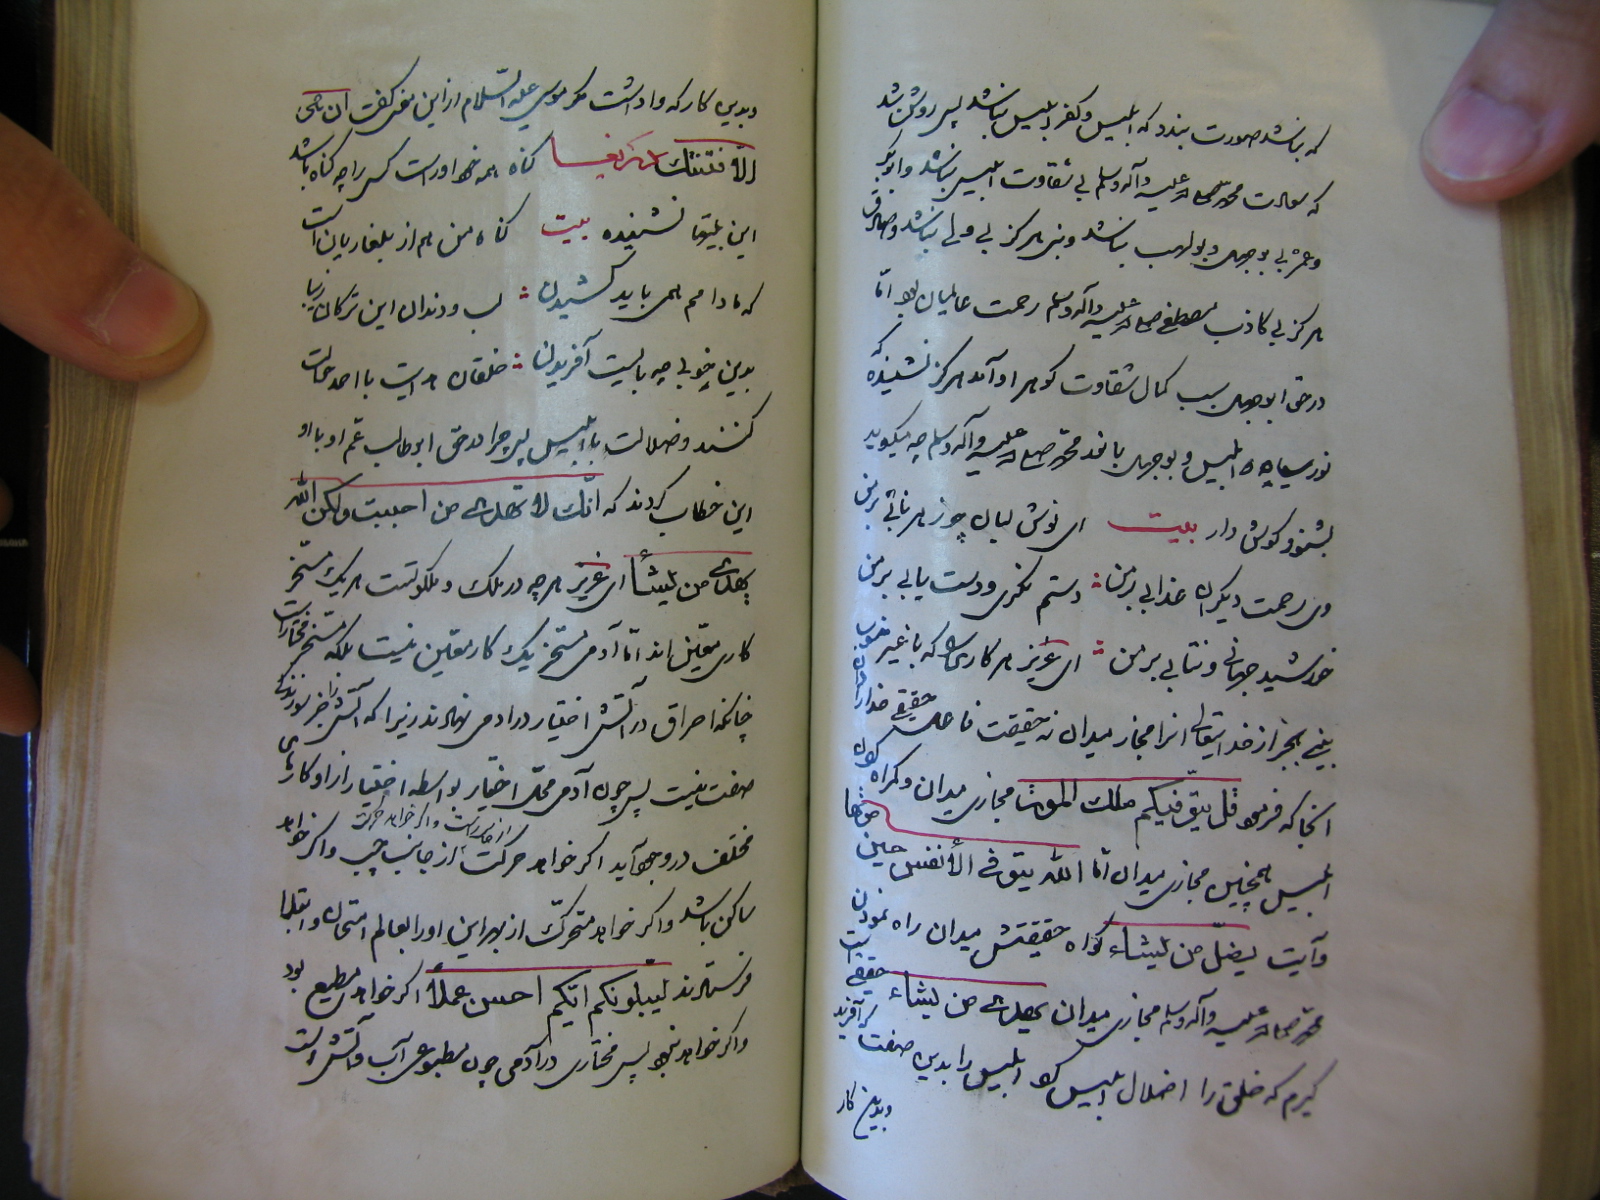 که نباشد صورت نبندد که ابلیس و کفر ابلیس نباشد پس روشن شد
که سعادت محمد صلی الله علیه و آله وسلم بی شقاوت ابلیس نباشد و ابوبکر
و عمر بی بوجهل و بولهب نباشد و نبی هرگز بی ولی نباشد و صادق
هرگز بی کاذب مصطفی صلی الله علیه وآله وسلم رحمت عالمیان بود امّا
در حق ابوجهل سبب کمال شقاوت گوهر او آمد هرگز نشنیدۀ که
نور سیاه ابلیس و بوجهل با نور محمّد صلی الله علیه وآله وسلم چه میگوید
بشنو و گوش دار بیت ای نوش لبان چو زهر نابی بر من
وی رحمت دیگران عذابی بر من : دستم نگری و دست یابی بر من
خورشید جهانی و نتابی بر من : ای عزیز هر کاری را که با غیر منسوب
بینی بجز از خدایتعالی انرا مجاز میدان نه حقیقت فاعل حقیقی خدا را دان
انجا که فرمود قل یتوفیکم ملک الموت مجازی میدان و گمراه کردن
ابلیس همچنین مجازی میدان امّا الله یتوفی الأنفس حین موتها
و آیت یضلّ من یشاء گواه حقیقتش میدان راه نمودن
محمّد صلی الله علیه وآله وسلم مجازی میدان یهدی من یشاء حقیقی است
گیرم که خلق را اضلال ابلیس کند ابلیس را بدین صفت که آفرید
وبدین کار
وبدین کار که واداشت مگر موسی علیه السّلام از این معنی گفت ان هی
الّا فتنتک گناه همه خود او راست کس را چه گناه باشد
این بیتها نشنیده بیت گناه من هم از بلغاریان است
که مادامم همی باید کشیدن : لب و دندان این ترکان زیبا
بدین خوبی چه بایست آفریدن : خلقان هدایت با احمد حوالت
کنند و ضلالت با ابلیس پس چرا در حق ابوطالب عم او با او
این خطاب کردند که انّک لا تهدی من احببت ولکن الله
یهدی من یشأ ای عزیز هر چه در ملک و ملکوتست هر یک مسخّر
کاری معیّن اند امّا آدمی مسخّر یک کار معیّن نیست بلکه مسخّر مختاریست
چنانکه احراق در آتش اختیار در ادمی نهاده اند زیرا که آتش را جز سوزندگی
صفت نیست پس چون آدمی محلّ اختیار بواسطه اختیار از او کارهای
مختلف در وجود آید اگر خواهد حرکت از جانب چپ و اگر خواهد
از جانب راست و اگر خواهد حرکت
ساکن باشد و اگر خواهد متحرّک از بهر این او را بعالم امتحان و ابتلا
فرستادند لیبلوکم ایّکم احسن عملاً اگر خواهد مطیع بود
و اگر خواهد نبود پس مختاری در آدمی چون مطبوعی آب و آتش است